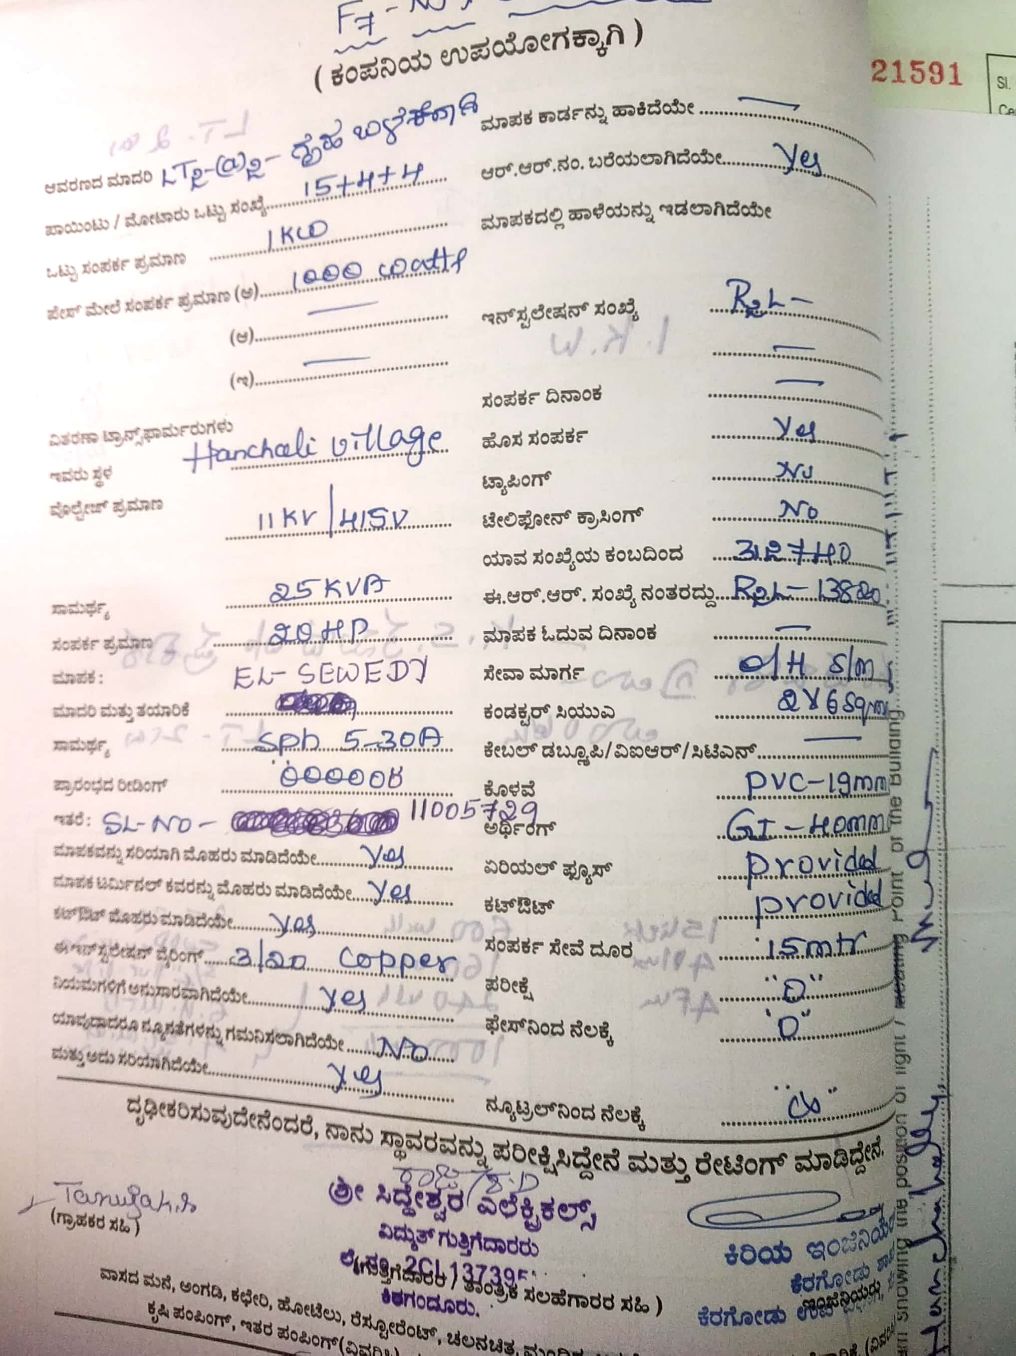 ( ಕಂಪನಿಯ ಉಪಯೋಗಕ್ಕಾಗಿ )
21591
Sl.
ಆವರಣದ ಮಾದರಿ LT2-(a)2- ಗೃಹ ಬಳಕೆಗಾಗಿ
ಪಾಯಿಂಟು / ಮೋಟಾರು ಒಟ್ಟು ಸಂಖ್ಯೆ 15+4+4
ಒಟ್ಟು ಸಂಪರ್ಕ ಪ್ರಮಾಣ 1KW
ಪೇಸ್ ಮೇಲೆ ಸಂಪರ್ಕ ಪ್ರಮಾಣ (ಅ) 1000 watts
(ಆ) —
(ಇ) —
ವಿತರಣಾ ಟ್ರಾನ್ಸ್‌ಫಾರ್ಮರುಗಳು
ಇವರು ಸ್ಥಳ Hanchali village
ವೊಲ್ಟೇಜ್ ಪ್ರಮಾಣ
11KV/415V
ಸಾಮರ್ಥ್ಯ 25KVA
ಸಂಪರ್ಕ ಪ್ರಮಾಣ 20HP
ಮಾಪಕ: EL-SEWEDY
ಮಾದರಿ ಮತ್ತು ತಯಾರಿಕೆ
ಸಾಮರ್ಥ್ಯ SPh 5-30A
ಪ್ರಾರಂಭದ ರೀಡಿಂಗ್ 000008
ಇತರೆ: SL-NO- 11005729
ಮಾಪಕವನ್ನು ಸರಿಯಾಗಿ ಮೊಹರು ಮಾಡಿದೆಯೇ Yes
ಮಾಪಕ ಟರ್ಮಿನಲ್ ಕವರನ್ನು ಮೊಹರು ಮಾಡಿದೆಯೇ Yes
ಕಟ್‌ಔಟ್ ಮೊಹರು ಮಾಡಿದೆಯೇ Yes
ಈ ಇನ್‌ಸ್ಟಲೇಷನ್ ವೈರಿಂಗ್ 3/20 Copper
ನಿಯಮಗಳಿಗೆ ಅನುಸಾರವಾಗಿದೆಯೇ Yes
ಯಾವುದಾದರೂ ನ್ಯೂನತೆಗಳನ್ನು ಗಮನಿಸಲಾಗಿದೆಯೇ No
ಮತ್ತು ಅದು ಸರಿಯಾಗಿದೆಯೇ Yes
ಮಾಪಕ ಕಾರ್ಡನ್ನು ಹಾಕಿದೆಯೇ —
ಆರ್.ಆರ್.ನಂ. ಬರೆಯಲಾಗಿದೆಯೇ Yes
ಮಾಪಕದಲ್ಲಿ ಹಾಳೆಯನ್ನು ಇಡಲಾಗಿದೆಯೇ
ಇನ್‌ಸ್ಟಲೇಷನ್ ಸಂಖ್ಯೆ R2L-
—
ಸಂಪರ್ಕ ದಿನಾಂಕ —
ಹೊಸ ಸಂಪರ್ಕ Yes
ಟ್ಯಾಪಿಂಗ್ No
ಟೇಲಿಫೋನ್ ಕ್ರಾಸಿಂಗ್ No
ಯಾವ ಸಂಖ್ಯೆಯ ಕಂಬದಿಂದ 312740
ಈ.ಆರ್.ಆರ್. ಸಂಖ್ಯೆ ನಂತರದ್ದು R2L-13820
ಮಾಪಕ ಓದುವ ದಿನಾಂಕ —
ಸೇವಾ ಮಾರ್ಗ O/H S/m
ಕಂಡಕ್ಟರ್ ಸಿಯುಎ 2X6Sqm
ಕೇಬಲ್ ಡಬ್ಲ್ಯೂಪಿ/ವಿಐಆರ್/ಸಿಟಿಎನ್ —
ಕೊಳವೆ PVC-19mm
ಅರ್ಥಿಂಗ್ GI-40mm
ಏರಿಯಲ್ ಫ್ಯೂಸ್ provided
ಕಟ್‌ಔಟ್ provided
ಸಂಪರ್ಕ ಸೇವೆ ದೂರ 15mtr
ಪರೀಕ್ಷೆ "0"
ಫೇಸ್‌ನಿಂದ ನೆಲಕ್ಕೆ "0"
ನ್ಯೂಟ್ರಲ್‌ನಿಂದ ನೆಲಕ್ಕೆ
ದೃಢೀಕರಿಸುವುದೇನೆಂದರೆ, ನಾನು ಸ್ಥಾವರವನ್ನು ಪರೀಕ್ಷಿಸಿದ್ದೇನೆ ಮತ್ತು ರೇಟಿಂಗ್ ಮಾಡಿದ್ದೇನೆ.
(ಗ್ರಾಹಕರ ಸಹಿ)
ಶ್ರೀ ಸಿದ್ದೇಶ್ವರ ಎಲೆಕ್ಟ್ರಿಕಲ್ಸ್,
ವಿದ್ಯುತ್ ಗುತ್ತಿಗೆದಾರರು
ಲೈ.ನಂ. 2CL137395
(ಗುತ್ತಿಗೆದಾರರ / ತಾಂತ್ರಿಕ ಸಲಹೆಗಾರರ ಸಹಿ )
ಕಿರಗಂದೂರು.
ಕಿರಿಯ ಇಂಜಿನಿಯರ್
ಕೆರಗೋಡು
ಕೆರಗೋಡು
ವಾಸದ ಮನೆ, ಅಂಗಡಿ, ಕಛೇರಿ, ಹೋಟೆಲು, ರೆಸ್ಟೋರೆಂಟ್, ಚಲನಚಿತ್ರ,
ಕೃಷಿ ಪಂಪಿಂಗ್, ಇತರ ಪಂಪಿಂಗ್
showing the position of light / meaning Point of the Building